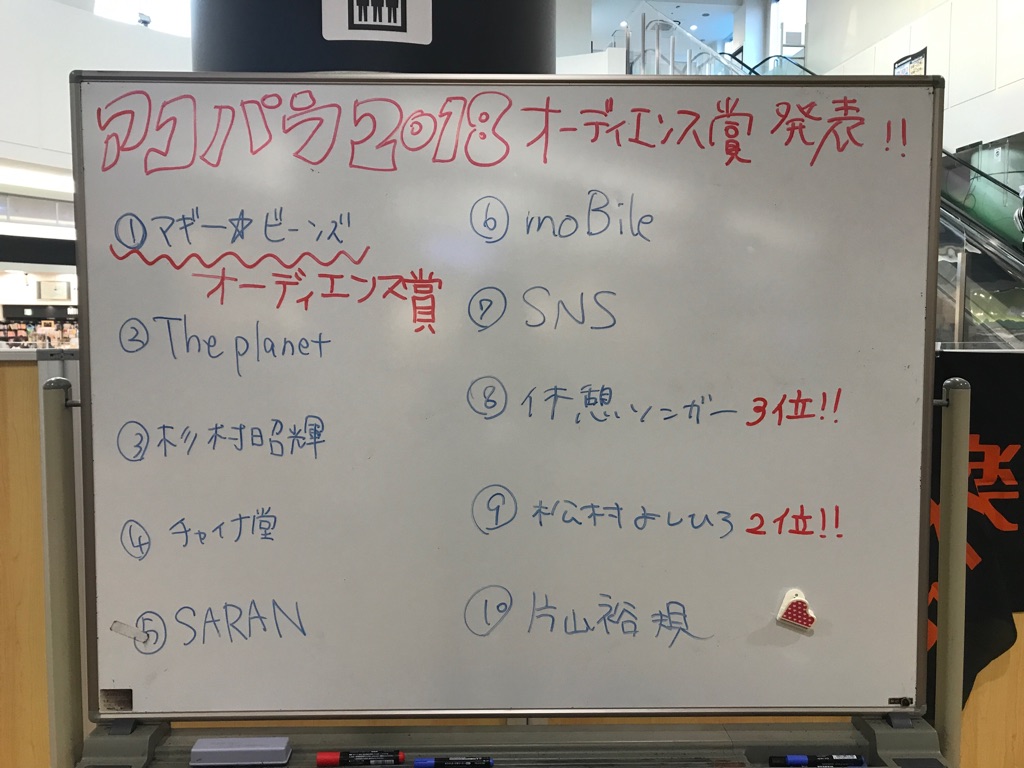 アコパラ2018 オーディエンス賞 発表!!
① マギー☆ビーンズ
オーディエンス賞
② The planet
③ 杉村昭輝
④ チャイナ堂
⑤ SARAN
⑥ moBile
⑦ SNS
⑧ 休憩シンガー 3位!!
⑨ 松村よしひろ 2位!!
⑩ 片山裕規